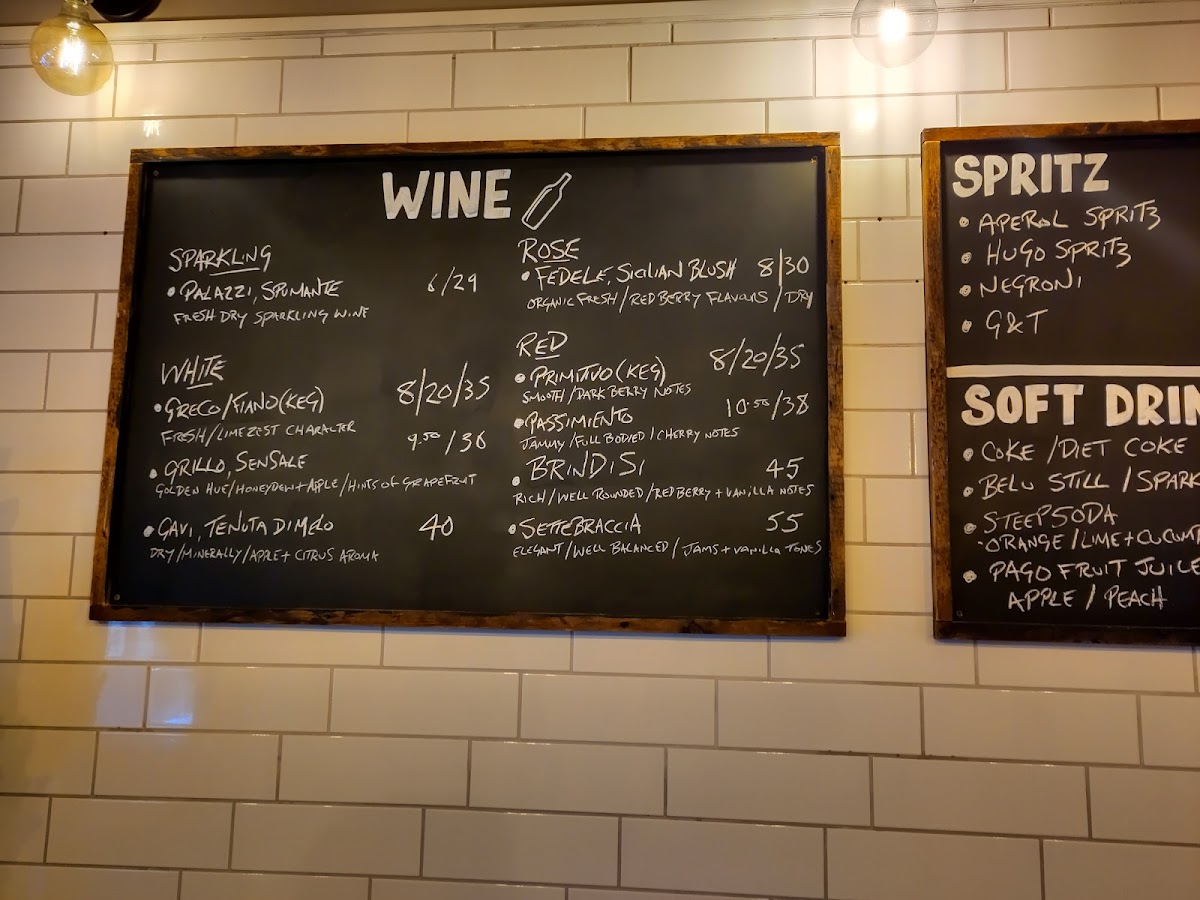 WINE
SPARKLING
• PALAZZI, SPUMANTE 6/29
FRESH DRY SPARKLING WINE
WHITE
• GRECO/FIANO(KEG) 8/20/35
FRESH/LIMEZEST CHARACTER
• GRILLO, SENSALE 9.50/36
GOLDEN HUE/HONEYDEW+APPLE/HINTS OF GRAPEFRUIT
• GAVI, TENUTA DI MELO 40
DRY/MINERALLY/APPLE+ CITRUS AROMA
ROSE
• FEDELE, SICILIAN BLUSH 8/30
ORGANIC FRESH/RED BERRY FLAVOURS/DRY
RED
• PRIMITIVO(KEG) 8/20/35
SMOOTH/DARK BERRY NOTES
• PASSIMIENTO 10.50/38
JAMMY/FULL BODIED/CHERRY NOTES
• BRINDISI 45
RICH/WELL ROUNDED/RED BERRY+VANILLA NOTES
• SETTEBRACCIA 55
ELEGANT/WELL BALANCED/JAMS+VANILLA TONES
SPRITZ
• APEROL SPRITZ
• HUGO SPRITZ
• NEGRONI
• G&T
SOFT DRIN
• COKE/DIET COKE
• BELU STILL/SPARK
• STEEPSODA
-ORANGE/LIME+CUCUM
• PAGO FRUIT JUICE
APPLE/PEACH